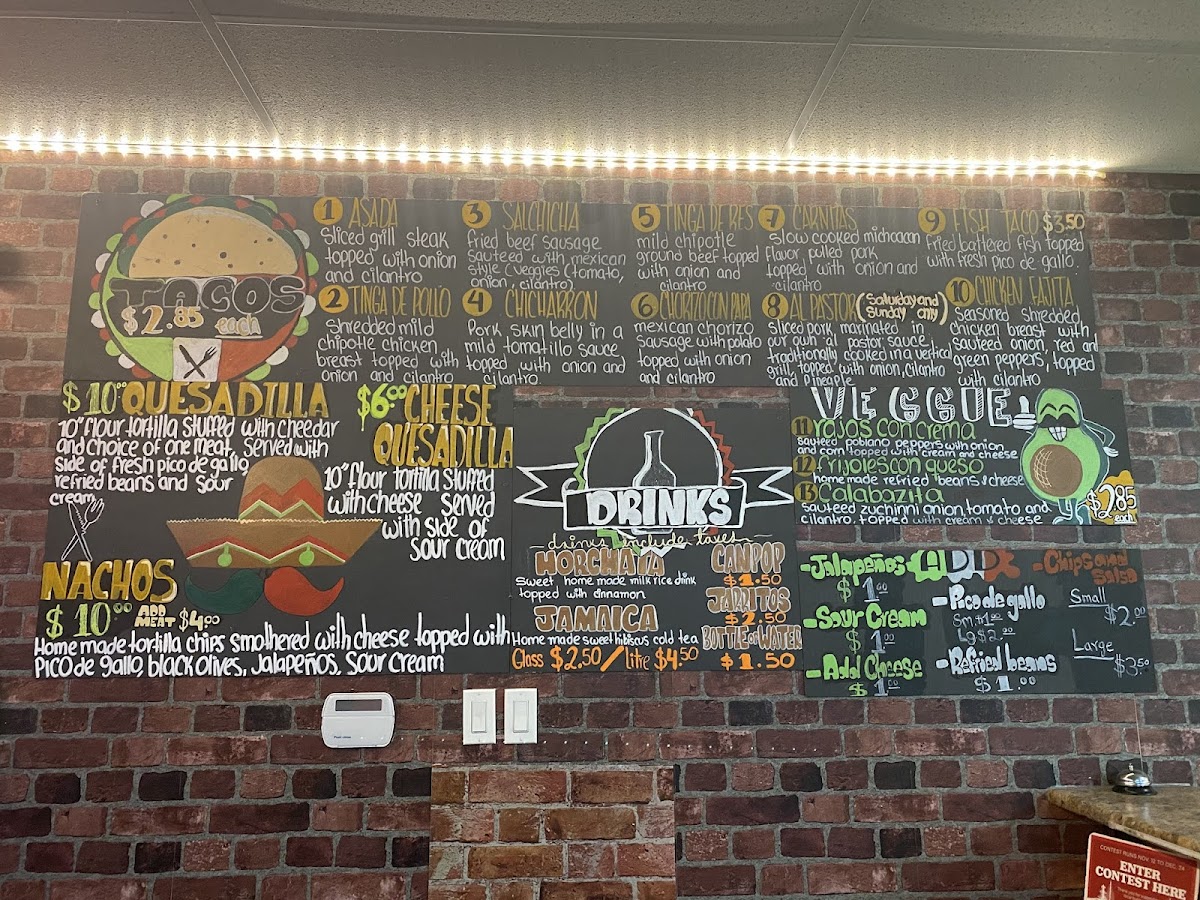 TACOS
$2.85 each
1 ASADA
Sliced grill steak
topped with onion
and cilantro
2 TINGA DE POLLO
Shredded mild
chipotle chicken
breast topped with
onion and cilantro
3 SALCHICHA
fried beef sausage
sauteed with mexican
style (veggies (tomato,
onion, cilantro)
4 CHICHARRON
Pork skin belly in a
mild tomatillo sauce
topped with onion and
cilantro
5 TINGA DE RES
mild chipotle
ground beef topped
with onion and
cilantro
6 CHORIZO CON PAPA
mexican chorizo
sausage with potato
topped with onion
and cilantro
7 CARNITAS
slow cooked michoacan
flavor pulled pork
topped with onion and
cilantro
8 AL PASTOR (Saturday and
Sunday only)
sliced pork marinated in
our own al pastor sauce
traditionally cooked in a vertical
grill, topped with onion, cilantro
and pineaple
9 FISH TACO $3.50
Fried battered fish topped
with fresh pico de gallo
10 CHICKEN FAJITA
Seasoned shredded
chicken breast with
sauteed onion, red and
green peppers, topped
with cilantro
$10.00 QUESADILLA
10" flour tortilla stuffed with chedar
and choice of one meat, served with
side of fresh pico de gallo
refried beans and sour
cream
$6.00 CHEESE
QUESADILLA
10" flour tortilla stuffed
with cheese served
with side of
sour cream
NACHOS
$10.00 ADD
MEAT $4.00
Home made tortilla chips smothered with cheese topped with
Pico de gallo, black olives, Jalapeños, Sour cream
DRINKS
drinks include taxes
HORCHATA
Sweet home made milk rice drink
topped with cinnamon
JAMAICA
Home made sweet hibiscus cold tea
Glass $2.50 / litre $4.50
CAN POP
$1.50
JARRITOS
$2.50
BOTTLE OF WATER
$1.50
VEGGIE
11 rajas con crema
sauteed poblano peppers with onion
and corn topped with cream and cheese
12 frijoles con queso
home made refried beans & cheese
13 Calabazita
sauteed zuchinni onion, tomato and
cilantro, topped with cream & cheese
$2.85
each
ADD
-Jalapeños
$1.00
-Sour Cream
$1.00
-Add Cheese
$1.00
-Pico de gallo
Sm $1.00
Lg $2.00
-Refried beans
$1.00
-Chips and
Salsa
Small
$2.00
Large
$3.50
CONTEST RUNS NOV. 12 TO DEC. 24
ENTER
CONTEST HERE